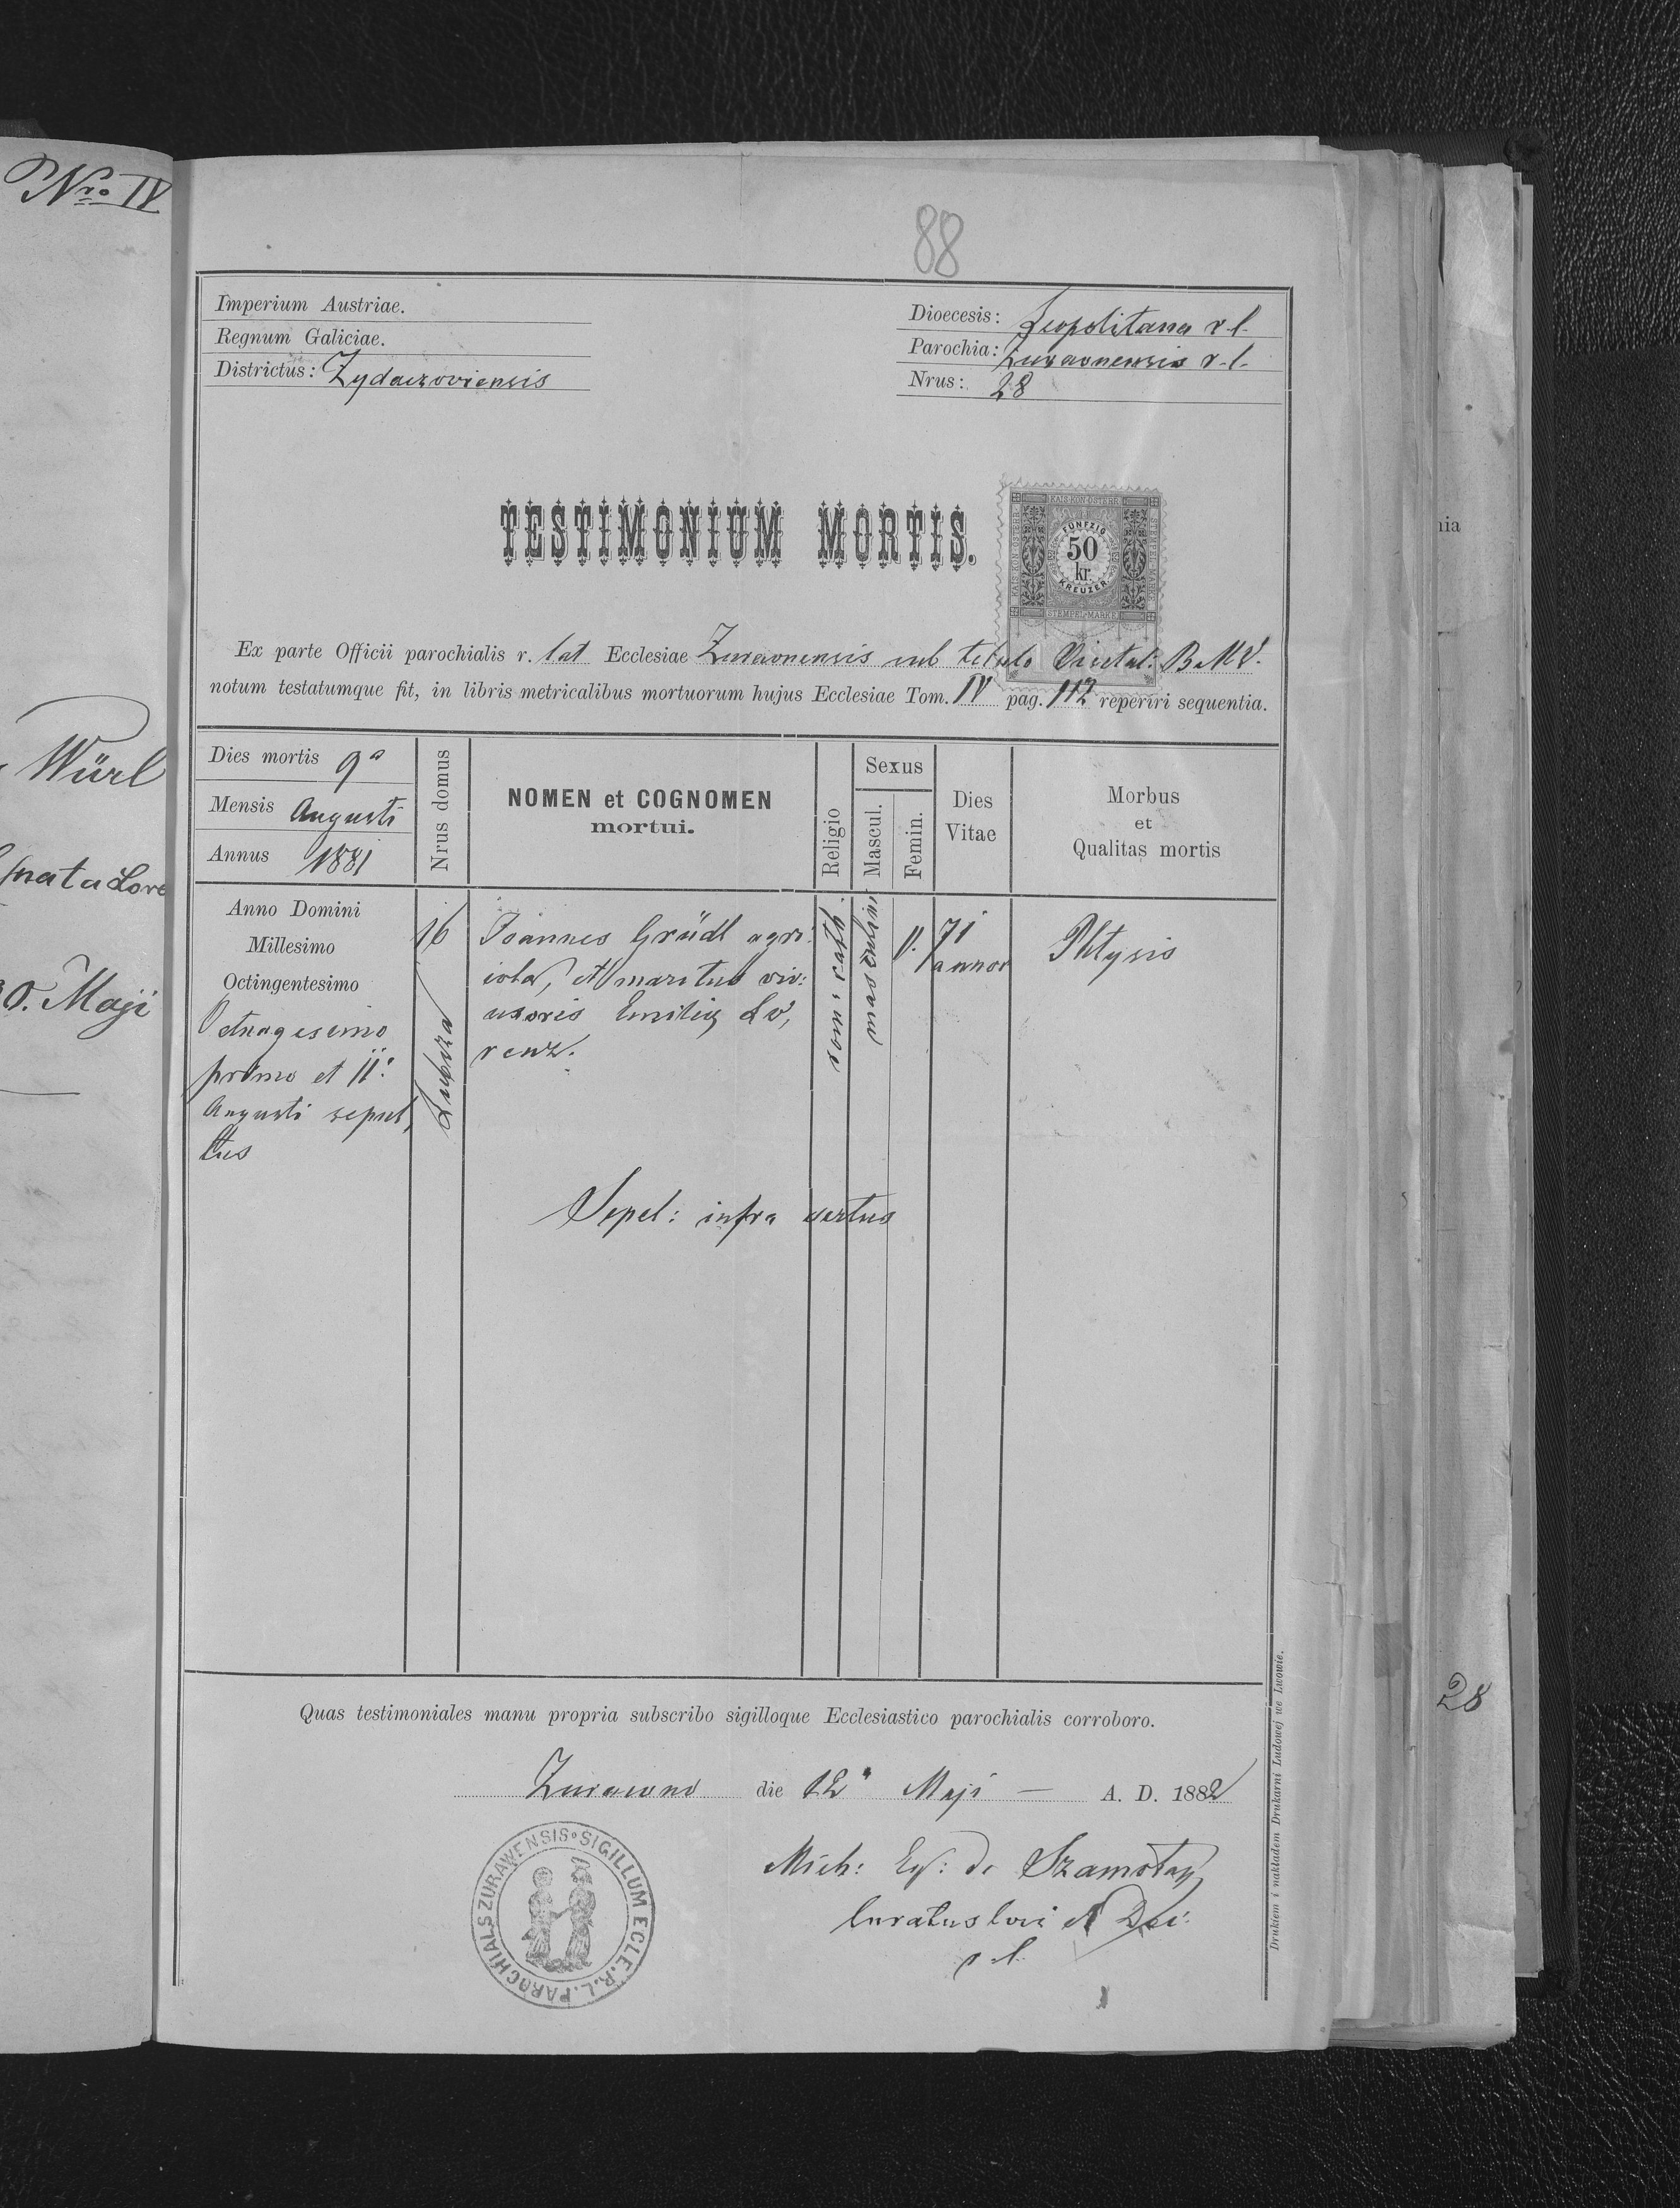 Nro IV
Würl
nata Lore
0. Maji
88
Imperium Austriae.
Regnum Galiciae.
Districtus: Zydaczoviensis
Dioecesis: Leopolitana r. l.
Parochia: Zuravnensis r. l.
Nrus: 28
TESTIMONIUM MORTIS.
KAIS. KÖN. ÖSTERR.
FÜNFZIG
50
kr.
KREUZER
STEMPEL MARKE
Ex parte Officii parochialis r. lat Ecclesiae Zuravnensis sub titulo Visitat: B.M.V.
notum testatumque fit, in libris metricalibus mortuorum hujus Ecclesiae Tom. IV pag. 112 reperiri sequentia.
Dies mortis 9a
Mensis Augusti
Annus 1881
Nrus domus
NOMEN et COGNOMEN
mortui.
Religio
Sexus
Mascul.
Femin.
Dies
Vitae
Morbus
et
Qualitas mortis
Anno Domini
Millesimo
Octingentesimo
Octuagesimo
primo et 11a
Augusti sepul,
tus
16
Lubsza
Joannes Gründl agri:
cola, et maritus viv:
uxoris Emiliy Lo,
renz.
rom: cath.
masculini
71
annor
Phtysis
Sepel: infra
Quas testimoniales manu propria subscribo sigilloque Ecclesiastico parochialis corroboro.
Zurawno die 12a Maji — A. D. 1882
Mich: Eq: de Szamotay
Curatus loci et
r. l.
SIGILLUM ECLE. R. L. PAROCHIALS ZURAWENSIS
Drukiem i nakładem Drukarni Ludowej we Lwowie.
nia
28